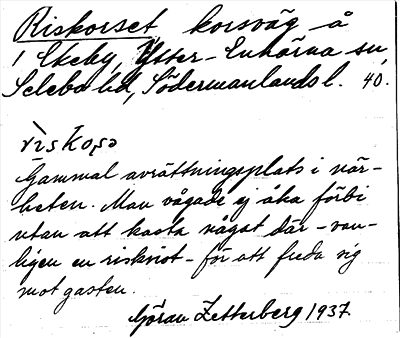 Riskorset, korsväg å
i Ekeby, Ytter-Enhörna sn,
Selebo hd, Södermanlands l. 40.
Gammal avrättningsplats i när-
heten. Man vågade ej åka förbi
utan att kasta något där - van-
ligen en riskvist - för att freda sig
mot gasten.
Göran Zetterberg 1937